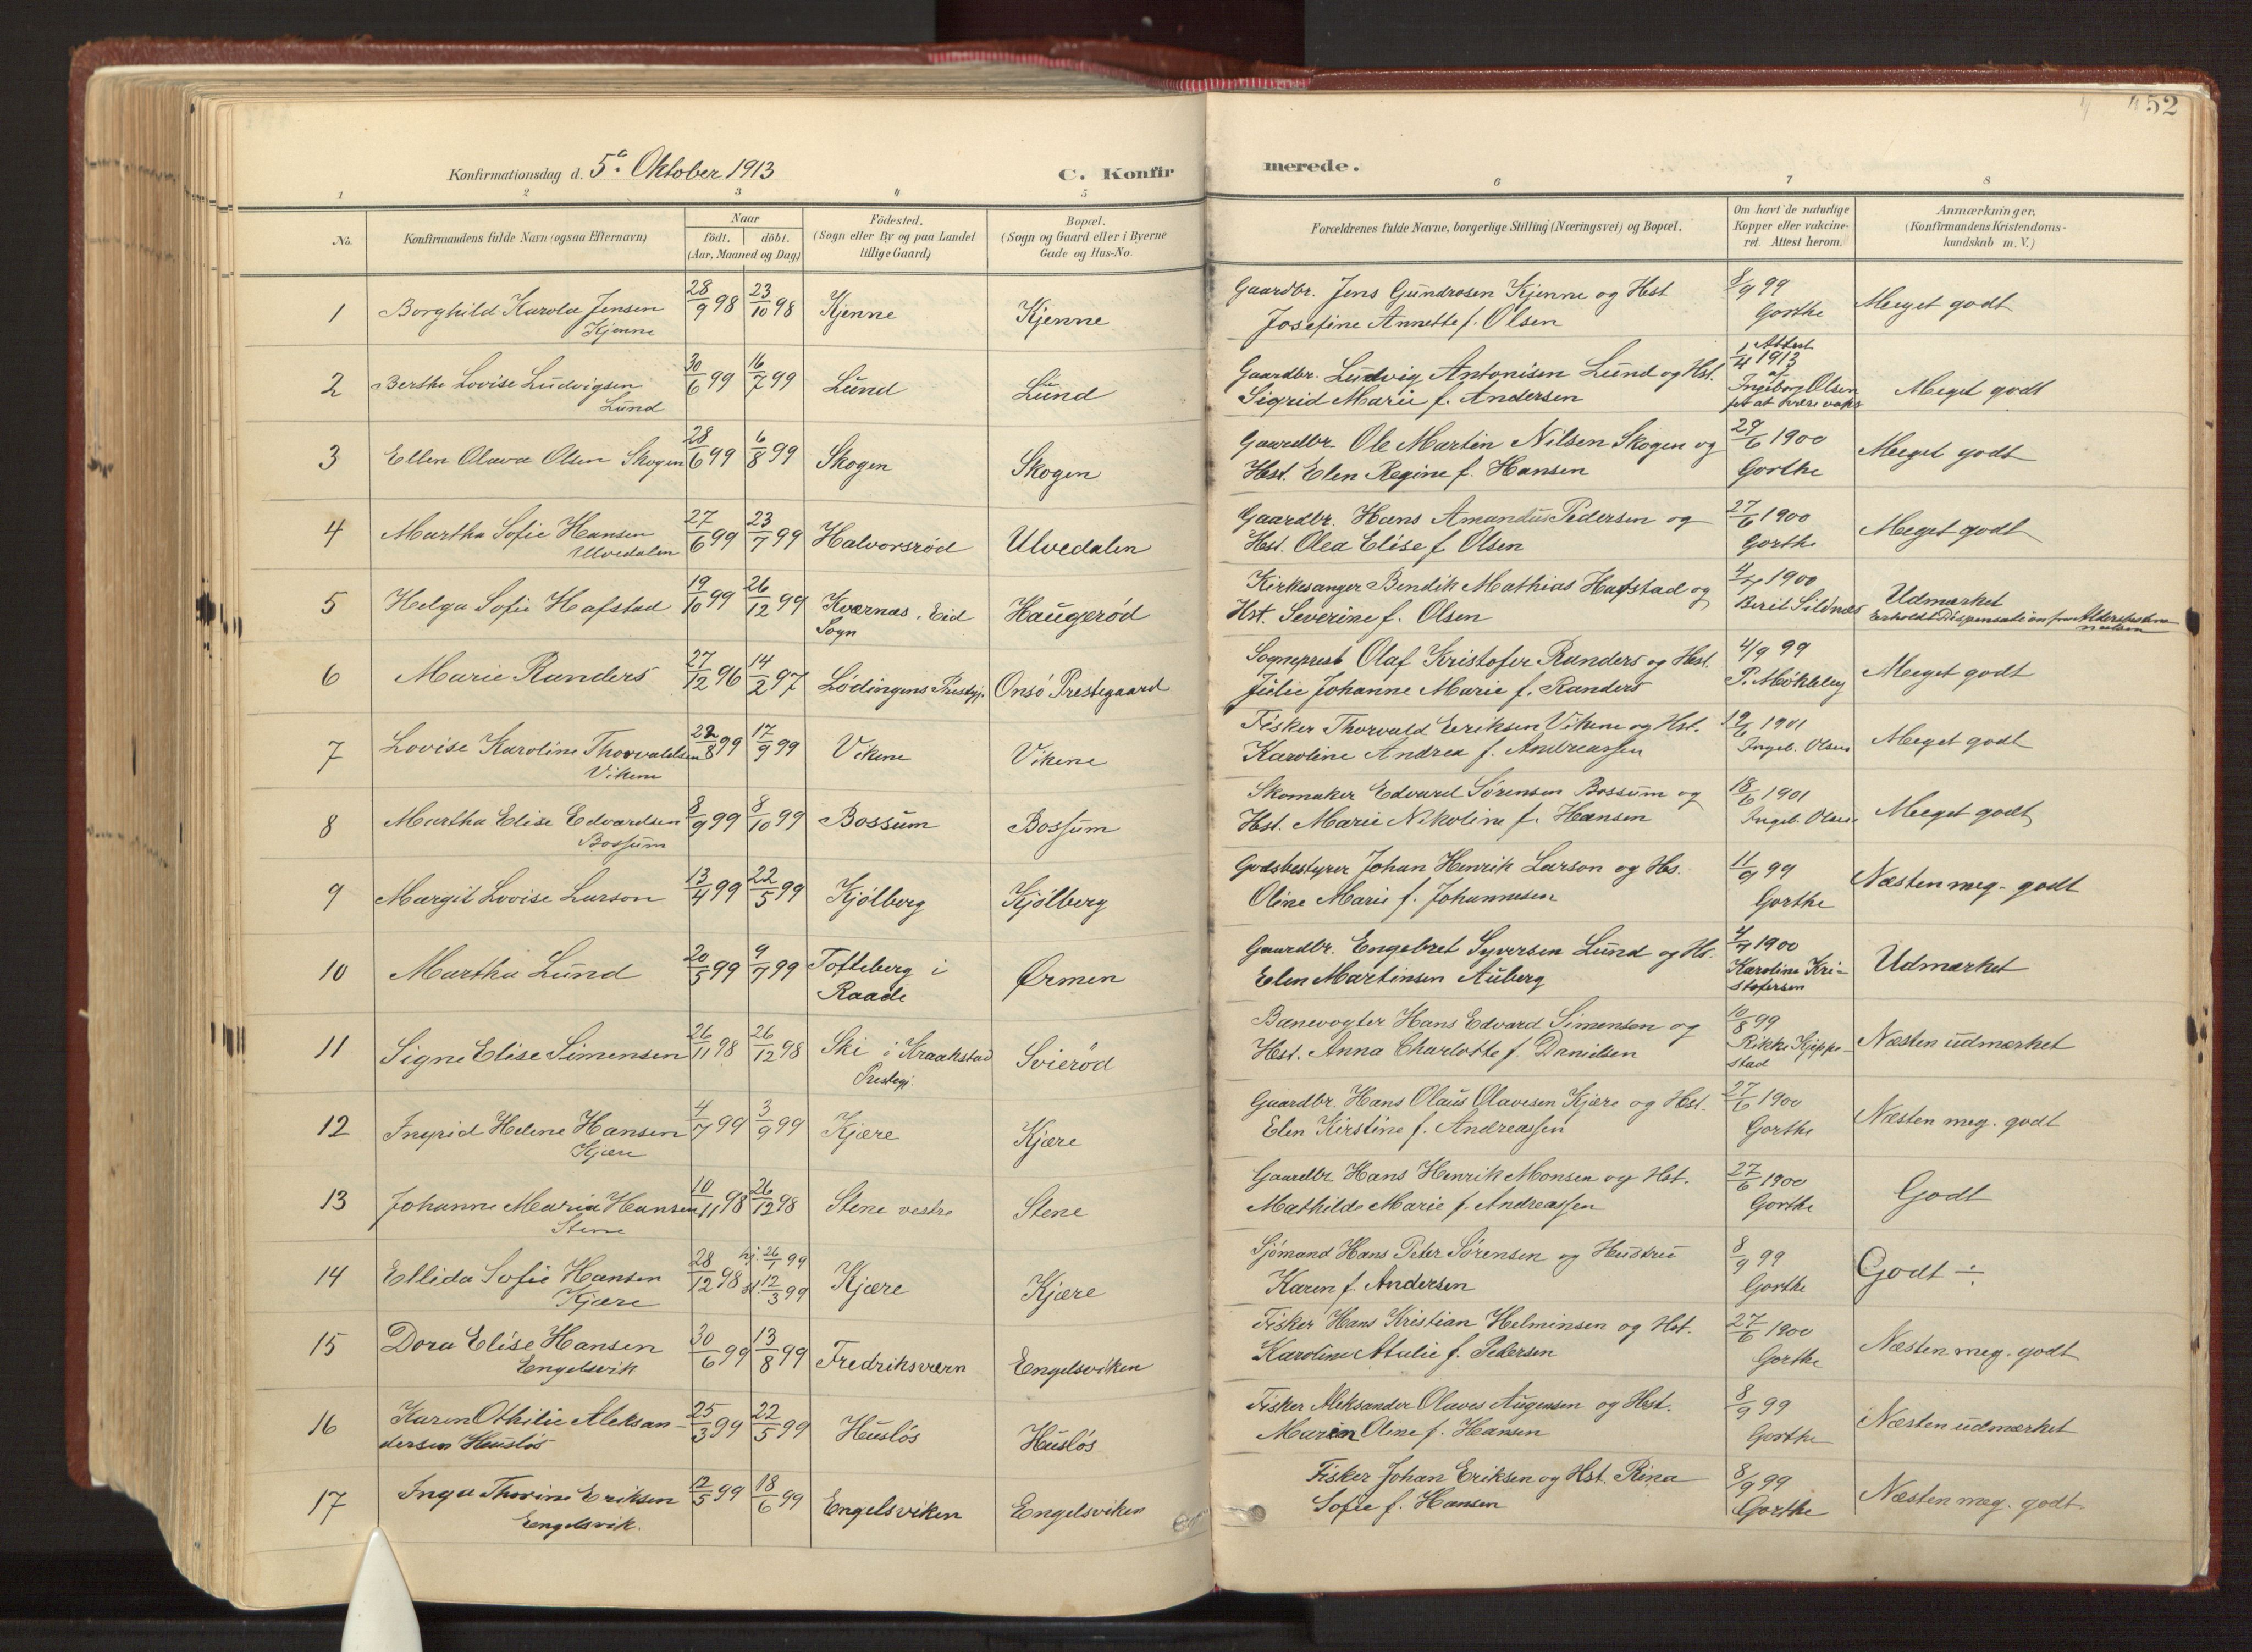 452
Konfirmationsdag d. 5te Oktober 1913
C. Konfir
merede.
1 2 3 4 5 6 7 8
No.
Konfirmandens fulde Navn (ogsaa Efternavn)
Naar
födt. döbt.
(Aar, Maaned og Dag)
Födested.
(Sogn eller By og paa Landet
tillige Gaard)
Bopæl.
(Sogn og Gaard eller i Byerne
Gade og Hus-No.
Forældrenes fulde Navne, borgerlige Stilling (Næringsvei) og Bopæl.
Om havt de naturlige
Kopper eller vakcine-
ret. Attest herom.
Anmærkninger,
(Konfirmandens Kristendoms-
kundskab m. V.)
1 Borghild Karola Jensen 28/9 98 23/10 98 Kjenne Kjenne Gaardbr. Jens Gundrosen Kjenne og Hst 8/9 99 Meget godt
Kjenne Josefine Annette f. Olsen Gorthe
2 Berthe Lovise Ludvigsen 30/6 99 16/7 99 Lund Lund Gaardbr. Ludvig Antonisen Lund og Hst. 1/4 1913 Attest Meget godt
Lund Sigrid Marie f. Andersen af Ingeborg Olsen
for at være vaks
3 Ellen Olava Olsen Skogen 28/6 99 6/8 99 Skogen Skogen Gaardbr. Ole Martin Nilsen Skogen og 29/6 1900 Meget godt
Hst. Elen Regine f. Hansen Gorthe
4 Martha Sofie Hansen 27/6 99 23/7 99 Halvorsrød Ulvedalen Gaardbr. Hans Amandus Pedersen og 27/6 1900 Meget godt
Ulvedalen Hst. Olea Elise f Olsen Gorthe
5 Helga Sofie Hafstad 19/10 99 26/12 99 Kværnæs, Eid Haugerød Kirkesanger Bendik Mathias Hafstad og 4/7 1900 Udmærket
Sogn Hst. Severine f. Olsen Berit Sildnes Erholdt Dispensation fra Aldersbestem
melsen
6 Marie Randers 27/12 96 14/2 97 Lødingens Prestgj. Onsö Prestegaard Sogneprest Olaf Kristofer Randers og Hst. 4/9 99 Meget godt
Julie Johanne Marie f. Randers P. Mökleby
7 Lovise Karoline Thorvaldsen 22/8 99 17/9 99 Vikene Vikene Fisker Thorvald Eriksen Vikene og Hst. 19/6 1901 Meget godt
Vikene Karoline Andrea f. Andreassen Ingeb. Olsen
8 Martha Elise Edvardsen 8/9 99 8/10 99 Bossum Bossum Skomaker Edvard Sörensen Bossum og 18/6 1901 Meget godt
Bossum Hst. Marie Nikoline f. Hansen Ingeb. Olsen
9 Margit Lovise Larson 13/4 99 22/5 99 Kjölberg Kjölberg Godsbestyrer Johan Henrik Larson og Hs. 11/9 99 Næsten meg. godt
Oline Marie f. Johannesen Gorthe
10 Martha Lund 20/5 99 9/7 99 Tofteberg i Ørmen Gaardbr. Engebret Syversen Lund og Hs. 4/7 1900 Udmærket
Raade Elen Martinsen Auberg Karoline Kri-
stofersen
11 Signe Elise Simensen 26/11 98 26/12 98 Ski i Kraakstad Svierød Banevogter Hans Edvard Simensen og 10/8 99 Næsten udmærket
Prestegj. Hst. Anna Charlotte f. Danielsen Rikke Kjeppe-
stad
12 Ingrid Helene Hansen 4/7 99 3/9 99 Kjære Kjære Gaardbr. Hans Olaus Olavesen Kjære og Hst. 27/6 1900 Næsten meg. godt
Kjære Elen Kirstine f. Andreassen Gorthe
13 Johanne Maria Hansen 10/11 98 26/12 98 Stene vestre Stene Gaardbr. Hans Henrik Monsen og Hst. 27/6 1900 Godt
Stene Mathilde Marie f. Andreassen Gorthe
14 Ellida Sofie Hansen 28/12 98 hj. 26/1 99 st. 12/3 99 Kjære Kjære Sjömand Hans Peter Sörensen og Hustru 8/9 99 Godt ÷
Kjære Karen f. Andersen Gorthe
15 Dora Elise Hansen 30/6 99 13/8 99 Fredriksværn Engelsviken Fisker Hans Kristian Helminsen og Hst. 27/6 1900 Næsten meg. godt
Engelsvik Karoline Atalie f. Pedersen Gorthe
16 Karen Othilie Aleksan- 25/3 99 22/5 99 Huslös Huslös Fisker Aleksander Olaves Augensen og Hst. 8/9 99 Næsten udmærket
dersen Huslös Maren Oline f. Hansen Gorthe
17 Inga Thorine Eriksen 12/5 99 18/6 99 Engelsviken Engelsviken Fisker Johan Eriksen og Hst. Rina 8/9 99 Næsten meg. godt
Engelsvik. Sofie f. Hansen Gorthe